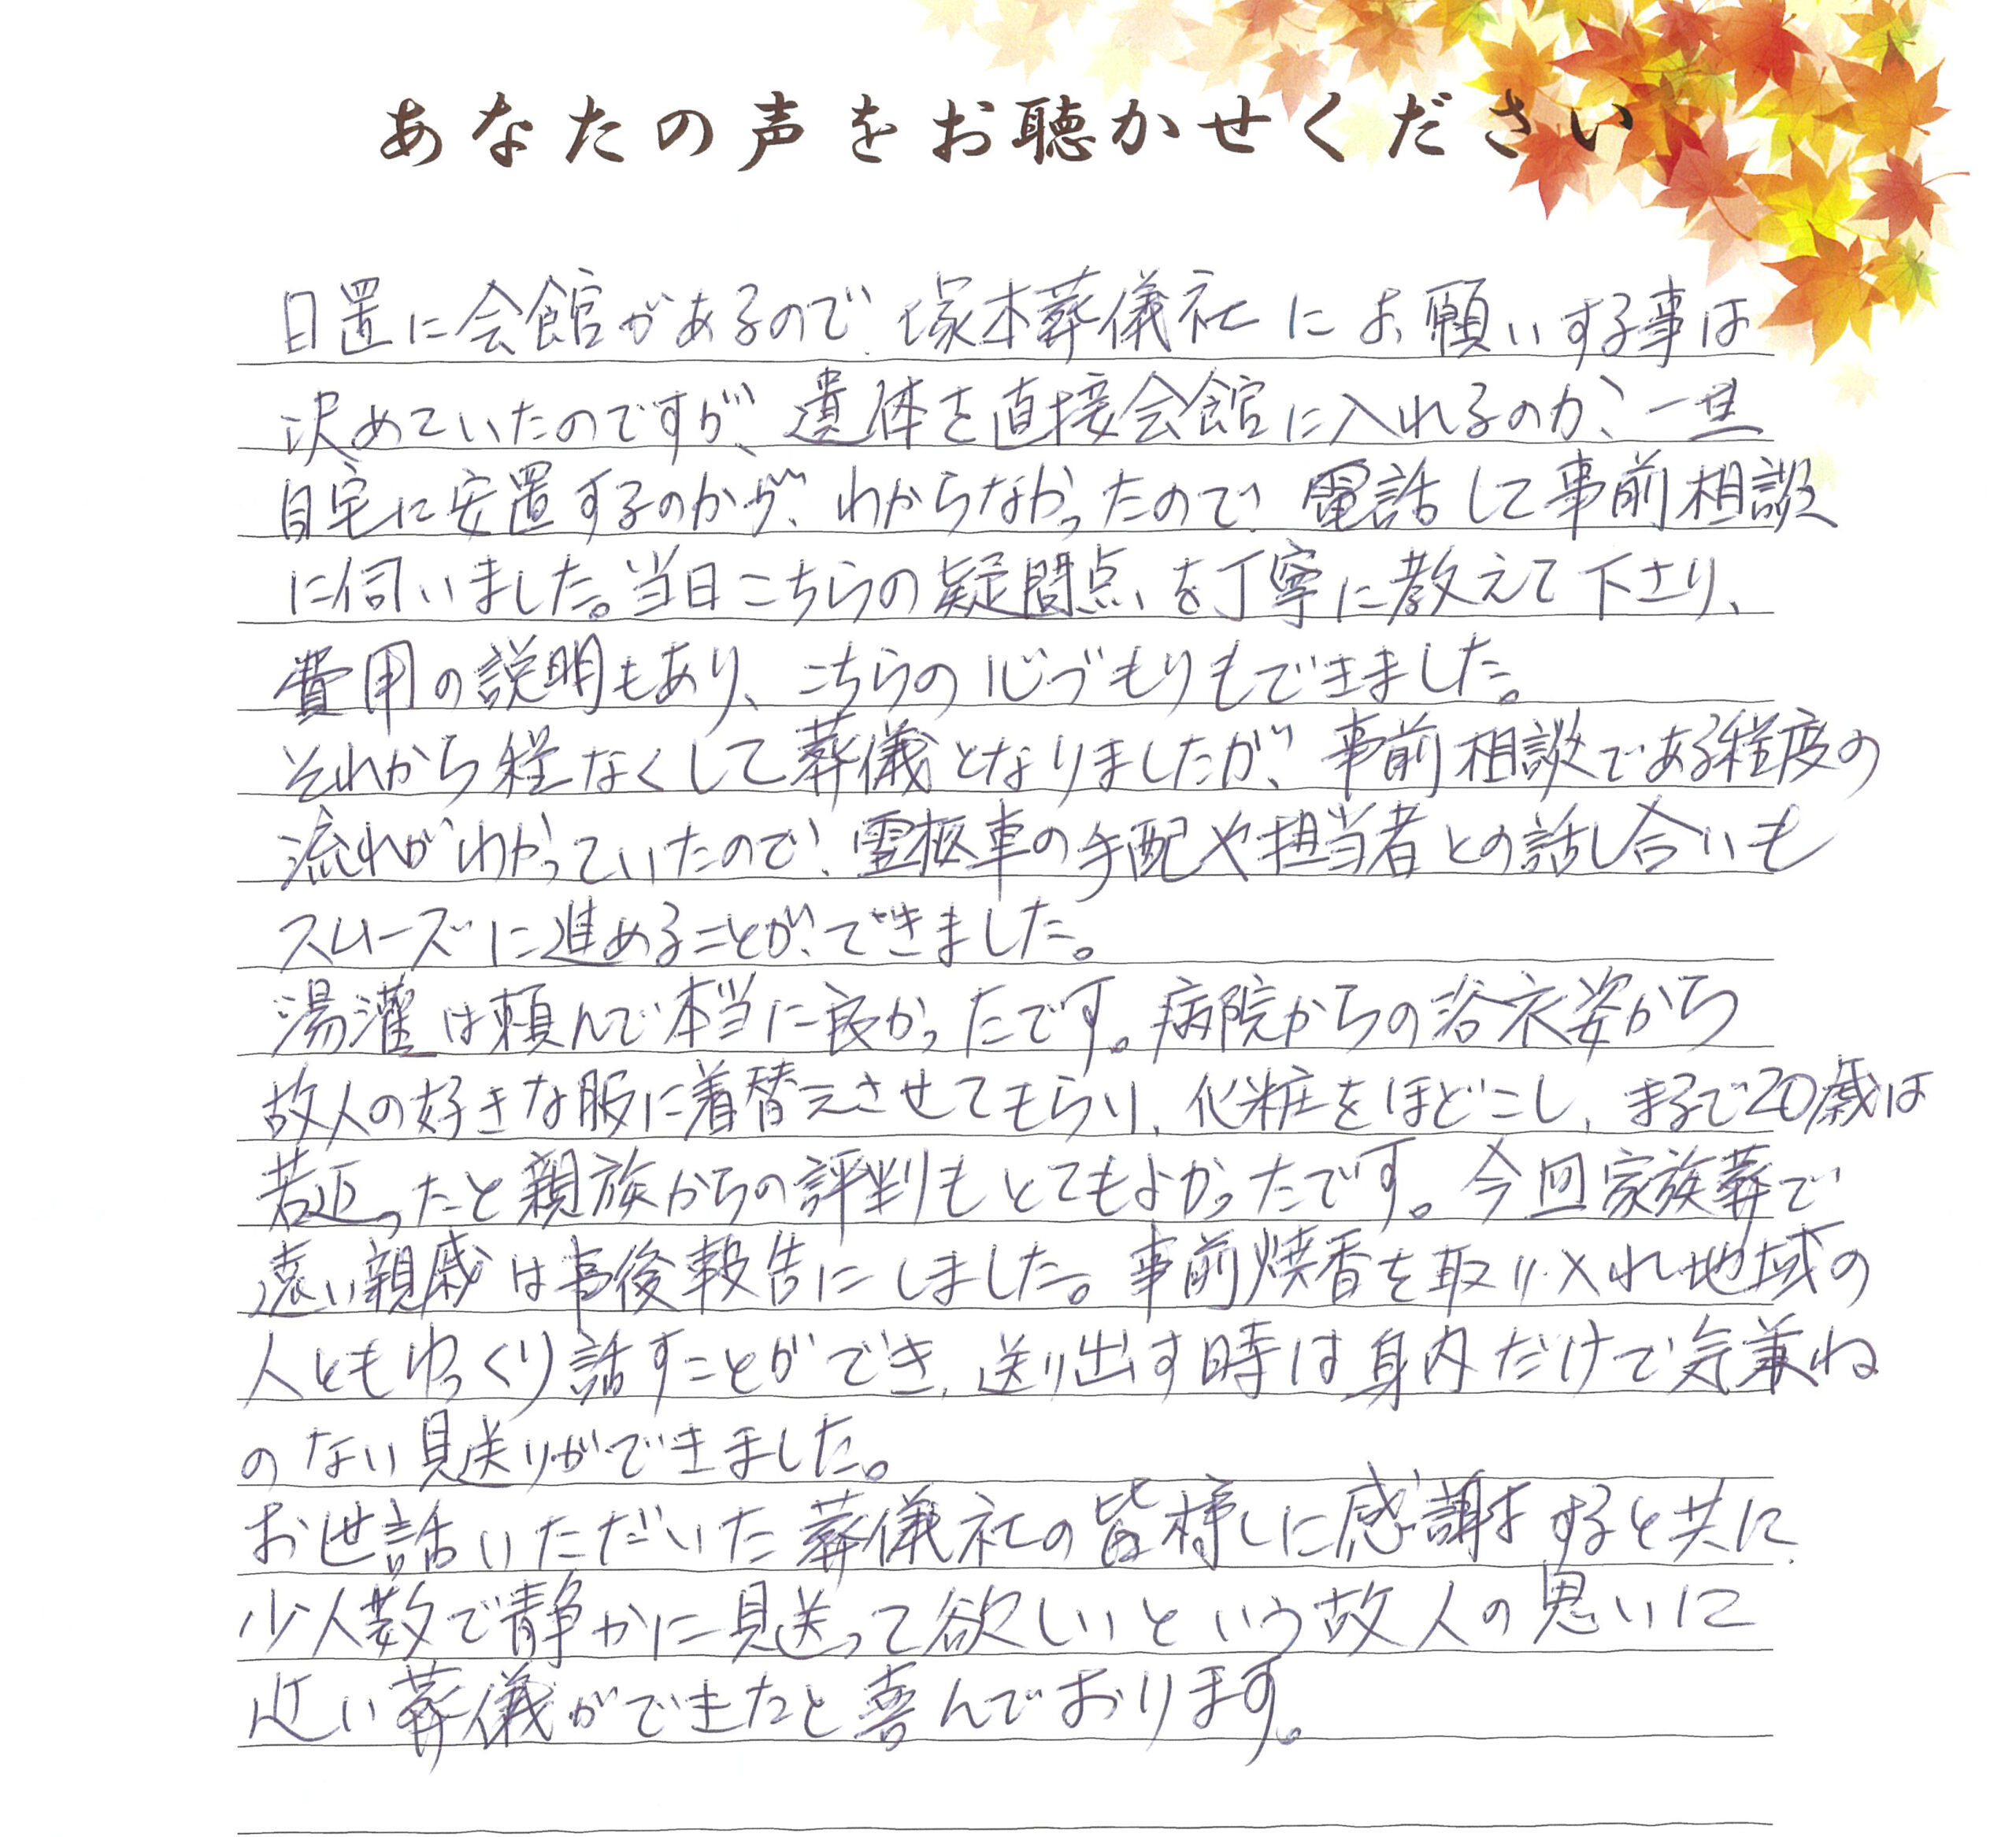 あなたの声をお聴かせください
日置に会館があるので、塚本葬儀社にお願いする事は
決めていたのですが、遺体を直接会館に入れるのか、一旦
自宅に安置するのかが、わからなかったので、電話して事前相談
に伺いました。当日こちらの疑問点を丁寧に教えて下さり、
費用の説明もあり、こちらの心づもりもできました。
それから程なくして葬儀となりましたが、事前相談である程度の
流れがわかっていたので、霊柩車の手配や担当者との話し合いも
スムーズに進めることができました。
湯灌は頼んで本当に良かったです。病院からの浴衣姿から
故人の好きな服に着替えさせてもらい、化粧をほどこし、まるで20歳は
若返ったと親族からの評判もとてもよかったです。今回家族葬で
遠い親戚は事後報告にしました。事前焼香を取り入れ地域の
人ともゆっくり話すことができ、送り出す時は身内だけで気兼ね
のない見送りができました。
お世話いただいた葬儀社の皆様に感謝すると共に、
少人数で静かに見送って欲しいという故人の思いに
近い葬儀ができたと喜んでおります。